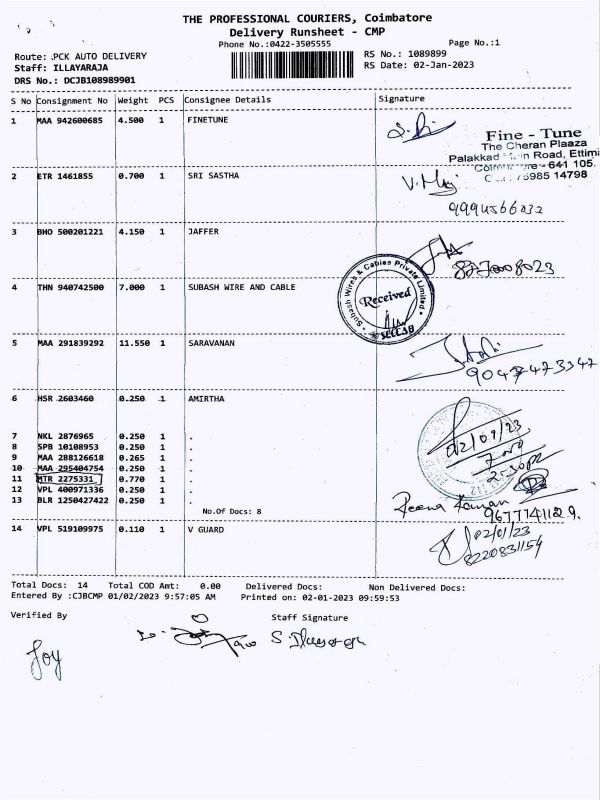 THE PROFESSIONAL COURIERS, Coimbatore
Delivery Runsheet - CMP
Phone No.:0422-3505555
Page No.:1
Route: PCK AUTO DELIVERY
RS No.: 1089899
Staff: ILLAYARAJA
RS Date: 02-Jan-2023
DRS No.: DCJB108989901
S No Consignment No Weight PCS Consignee Details Signature
1 MAA 942600685 4.500 1 FINETUNE
Fine - Tune
The Cheran Plaaza
Palakkad Main Road, Ettimi
- 641 105.
75985 14798
2 ETR 1461855 0.700 1 SRI SASTHA
3 BHO 500201221 4.150 1 JAFFER
4 THN 940742500 7.000 1 SUBASH WIRE AND CABLE
Subash Wires & Cables Private Limited
Received
5 MAA 291839292 11.550 1 SARAVANAN
9047473347
6 HSR 2603460 0.250 1 AMIRTHA
02/01/23
2-30pm
7 NKL 2876965 0.250 1 .
8 SPB 10108953 0.250 1 .
9 MAA 288126618 0.265 1 .
10 MAA 295404754 0.250 1 .
11 MTR 2275331 0.770 1 .
12 VPL 400971336 0.250 1 .
13 BLR 1250427422 0.250 1 .
No.Of Docs: 8
9677741129.
14 VPL 519109975 0.110 1 V GUARD
02/01/23
8220831154
Total Docs: 14 Total COD Amt: 0.00 Delivered Docs: Non Delivered Docs:
Entered By :CJBCMP 01/02/2023 9:57:05 AM Printed on: 02-01-2023 09:59:53
Verified By Staff Signature
Joy